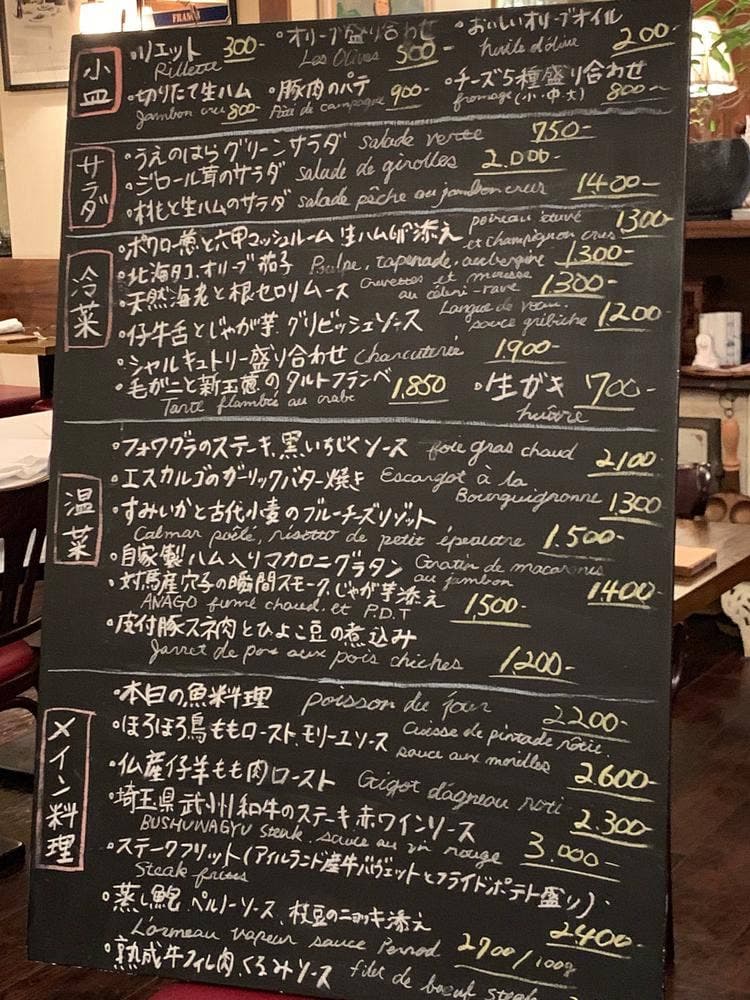 FRANC
小皿
・リエット 300-
Rillette
・オリーブ盛り合わせ
Les Olives 500-
・おいしいオリーブオイル
huile d'olive 200-
・切りたて生ハム
Jambon cru 800-
・豚肉のパテ
Pâté de campagne 900-
・チーズ5種盛り合わせ
fromage (小・中・大) 800-
サラダ
・うえのはらグリーンサラダ salade verte 750-
・ジロール茸のサラダ salade de girolles 2.000-
・桃と生ハムのサラダ salade pêche au jambon crus 1400-
冷菜
・ポワロー葱と六甲マッシュルーム 生ハム 添え poireau et champignon crus 1300-
・北海タコ、オリーブ茄子 Poulpe, tapenade, aubergine 1,300-
・天然海老と根セロリムース Crevettes et mousse au céleri-rave 1300-
・仔牛舌とじゃが芋、グリビッシュソース Langue de veau, sauce gribiche 1,200-
・シャルキュトリー盛り合わせ Charcuterie 1,900-
・毛ガニと新玉葱のタルトフランベ 1,850
Tarte flambée au crabe
・生ガキ 700-
huître
温菜
・フォワグラのステーキ、黒いちじくソース foie gras chaud 2100-
・エスカルゴのガーリックバター焼き Escargot à la Bourguignonne 1,300
・すみいかと古代小麦のブルーチーズリゾット
Calmar poêlé, risotto de petit épeautre 1.500-
・自家製ハム入りマカロニグラタン Gratin de macaronis au jambon 1400-
・対馬産穴子の瞬間スモーク、じゃが芋添え
ANAGO fumé chaud et P.D.T 1,500-
・皮付豚スネ肉とひよこ豆の煮込み
Jarret de porc aux pois chiches 1,200-
メイン料理
・本日の魚料理 poisson du jour 2200-
・ほろほろ鳥ももロースト、モリーユソース Cuisse de pintade rôtie sauce aux morilles 2.600-
・仏産仔羊もも肉ロースト Gigot d'agneau roti 2.300-
・埼玉県武州和牛のステーキ、赤ワインソース
BUSHUWAGYU steak, sauce au vin rouge 3.000-
・ステークフリット(アイルランド産牛バヴェットとフライドポテト盛り)
Steak frites 2400-
・蒸し鮑、ペルノーソース、枝豆のニョッキ添え
L'ormeau vapeur sauce Pernod 2700/100g
・熟成牛フィレ肉、くるみソース filet de boeuf steak